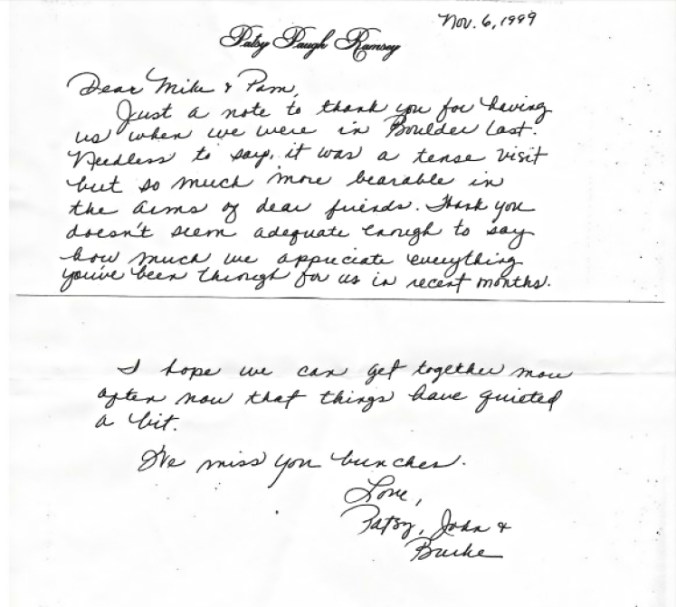 Nov. 6, 1999
Patsy Paugh Ramsey
Dear Mike & Pam,
Just a note to thank you for having
us when we were in Boulder last.
Needless to say, it was a tense visit
but so much more bearable in
the arms of dear friends. Thank you
doesn't seem adequate enough to say
how much we appriciate everything
you've been through for us in recent months.
I hope we can get together more
often now that things have quieted
a bit.
We miss you bunches.
Love,
Patsy, John &
Burke